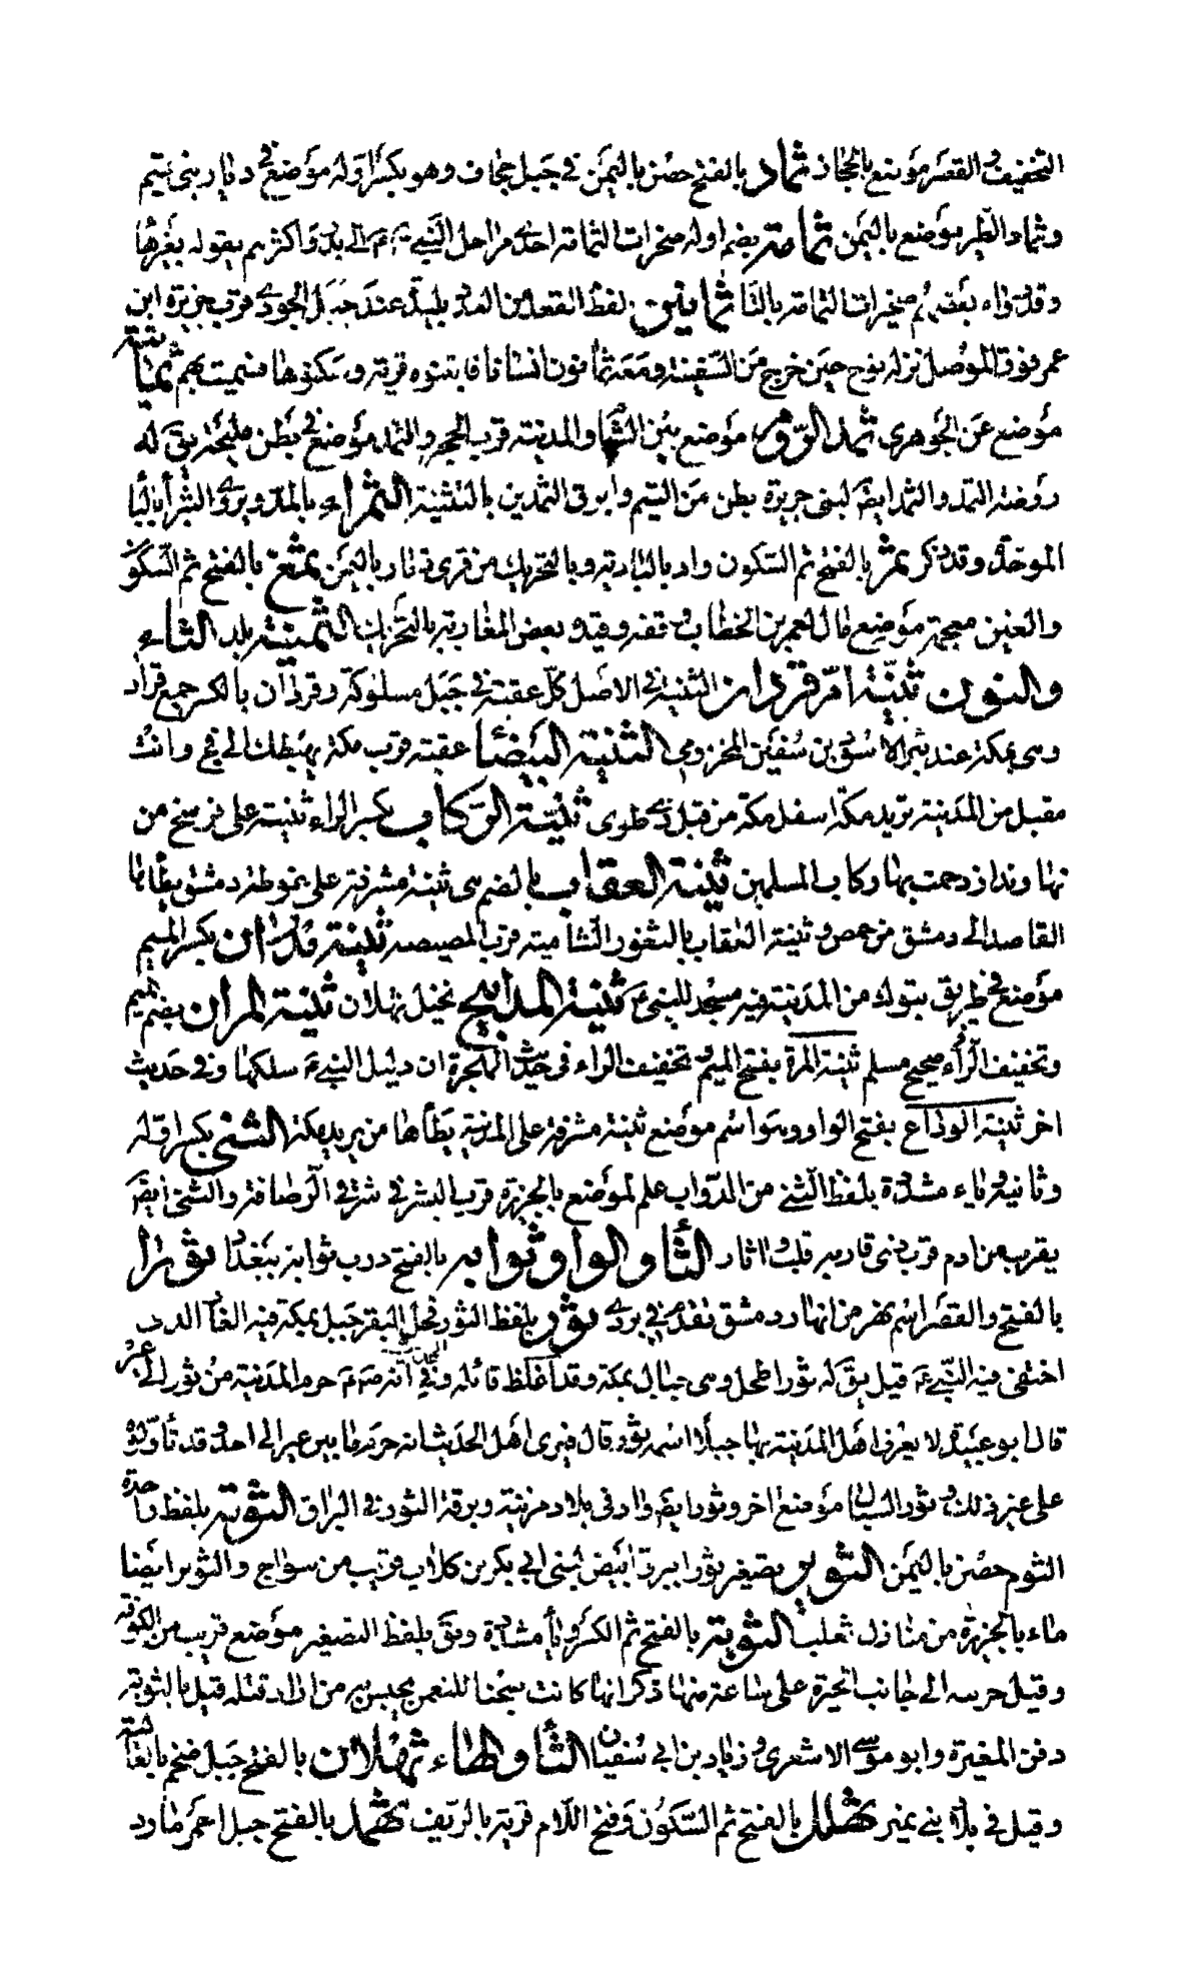 التخفيف والقصر موضع بالحجاز ثماد بالفتح حصن بالیمن في جبل جحاف وهو بكسر اوله موضع في ديار بني تميم
وثماد الطير موضع باليمن ثمامة بضم اوله صخيرات الثمامة احدى مراحل النبي صم الى بدر واكثرهم يقوله بغيرها
وقد رواه بعضهم صخيرات الثمامة بالثا ثمانين لفظ العقد من العدد بليد عند جبل الجودي قرب جزيرة ابن
عمر فوق الموصل نزله نوح حين خرج من السفينة ومعه ثمانون انسانا فابتنوه قرية وسكنوها فسميت بهم ثمينا
موضع عن الجوهري ثمد الروم موضع بين الشام والمدينة قرب الحجر والثمد موضع في بطن مليحة يق له
روضة الثمد والثمد ايضا لبني جريرة بطن من التيم وابرق الثمدين بالتثنية الثمراء بالمد ويروى البثراء بالبا
الموحدة وقد ذكر ثمر بالفتح ثم السكون واد بالبادية وبالتحريك من قرى ذمار باليمن ثمغ بالفتح ثم السكون
والغين معجمة موضع مال لعمر بن الخطاب وقفه وقيده بعض المغاربة بالتحريك الثمينة بلد الثاء
والنون ثنية ام قردان الثنية في الاصل كل عقبة في جبل مسلوكة وقردان بالكسر جمع قراد
وهى بمكة عند بئر الاسود بن سفين المخزومي الثنية البيضا عقبة قرب مكة يهبطك الى فخ وانت
مقبل من المدينة تريد مكة اسفل مكة من قبل ذي طوى ثنية الركاب بكسر الراء ثنية على فرسخ من
نهاوند ازدحمت بها ركاب المسلمين ثنية العقاب بالضم هى ثنية مشرفة على غوطة دمشق يطأها
القاصد الى دمشق من حمص وثنية العقاب بالثغور الشامية قرب المصيصه ثنية مدران بكسر الميم
موضع في طريق تبوك من المدينة فيه مسجد للنبي ثنية المذابيح نخيل ثهلان ثنية المرار بضم الميم
وتخفيف الراء وصحيح مسلم ثنية المرة بفتح الميم وتخفيف الراء في حديث الهجرة ان دليل النبي سلكها وفي حديث
اخر ثنية الوداع بفتح الواو وهو اسم موضع ثنية مشرفة على المدينة يطأها من يريد مكة الثني بكسر اوله
وثانيه وياء مشددة بلفظ الثني من الدواب علم لموضع بالجزيرة قرب البشر في شرقي الرصافة والثني ايضا
يقرب من ادم قرب ذي قار به قلب واثار الثا والواو ثوابه بالفتح درب ثوابة ببغداد ثورا
بالفتح والقصر اسم نهر من انهار دمشق تقدم في بردى ثور بلفظ الثور فحل البقر جبل بمكة فيه الغار الذى
اختفى فيه النبي قيل يق له ثور اطحل وهى جبال بمكة وقد اغلظ قائله وفي انه صم حرم المدينة من ثور الى عير
قال ابو عبيد لا يعرف اهل المدينة بها جبلا اسمه ثور قال فيرى اهل الحديث انه حرم ما بين عير الى احد وقد تأولوه
على غير ذلك وثور الشباك موضع اخر وثور ايضا واد في بلاد مزينة وبرقة الثور في البراق الثومة بلفظ واحدة
الثوم حصن باليمن الثوير تصغير ثور ابيرق ابيض لبنى ابي بكر بن كلاب قريب من سواج والثوير ايضا
ماء بالجزيرة من منازل تغلب الثوية بالفتح ثم الكسر ويا مشددة ويق بلفظ التصغير موضع قريب من الكوفة
وقيل خريبه الى جانب الحيرة على ساعة منها ذكر انها كانت سجنا للنعمن يحبس به من اراد قتله قيل بالثوية
دفن المغيرة وابو موسى الاشعري وزياد بن ابي سفيان الثا والهاء ثهلان بالفتح جبل ضخم بالعالية
وقيل في بلاد بني نمير ثهلل بالفتح ثم السكون وفتح اللام قرية بالريف ثهمد بالفتح جبل احمر مارد